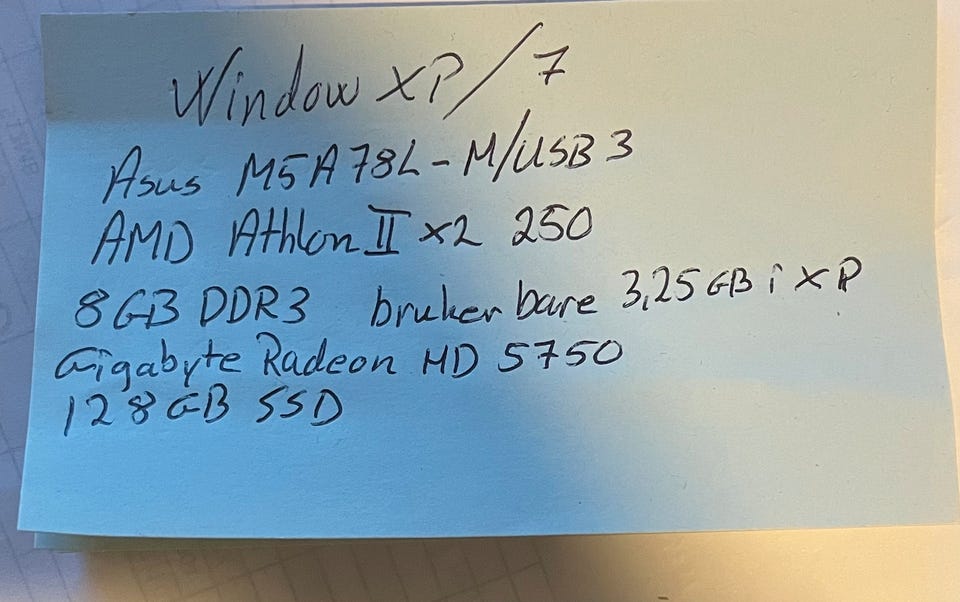 Window XP/7
Asus M5A78L-M/USB3
AMD Athlon II x2 250
8GB DDR3 bruker bare 3,25GB i XP
Gigabyte Radeon HD 5750
128GB SSD